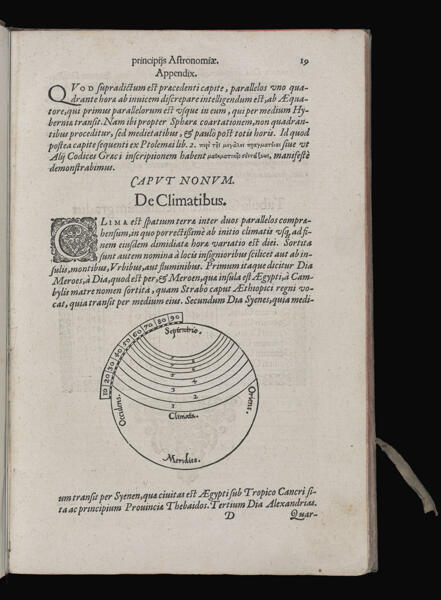 principijs Astronomiæ. 19
Appendix.
QVOD supradictum est præcedenti capite, parallelos vno qua-
drante hora ab inuicem discrepare intelligendum est, ab Æqua-
tore, qui primus parallelorum est vsque in eum, qui per medium Hy-
berniæ transit. Nam ibi propter Sphæræ coartationem, non quadran-
tibus proceditur, sed medietatibus, & paulò post totis horis. Id quod
postea capite sequenti ex Ptolemæi lib. 2. siue vt
Alij Codices Græci inscriptionem habent manifestè
demonstrabimus.
CAPVT NONVM.
De Climatibus.
CLIMA est spatium terræ inter duos parallelos compre-
hensum, in quo porrectissimè ab initio climatis vsq, ad fi-
nem eiusdem dimidiatæ horæ variatio est diei. Sortita
sunt autem nomina à locis insignioribus scilicet aut ab in-
sulis, montibus, Vrbibus, aut fluminibus. Primum itaque dicitur Dia
Meroes, à Dia, quod est per, & Meroen, quæ insula est Ægypti, à Cam-
bylis matre nomen sortita, quam Strabo caput Æthiopici regni vo-
cat, quia transit per medium eius. Secundum Dia Syenes, quia medi-
10 20 30 40 50 60 70 80 90
Septentrio.
Occidens.
Oriens.
4
3
2
1
Climata.
Meridies.
um transit per Syenen, quæ ciuitas est Ægypti sub Tropico Cancri si-
ta ac principium Prouinciæ Thebaidos. Tertium Dia Alexandrias.
D Quar-